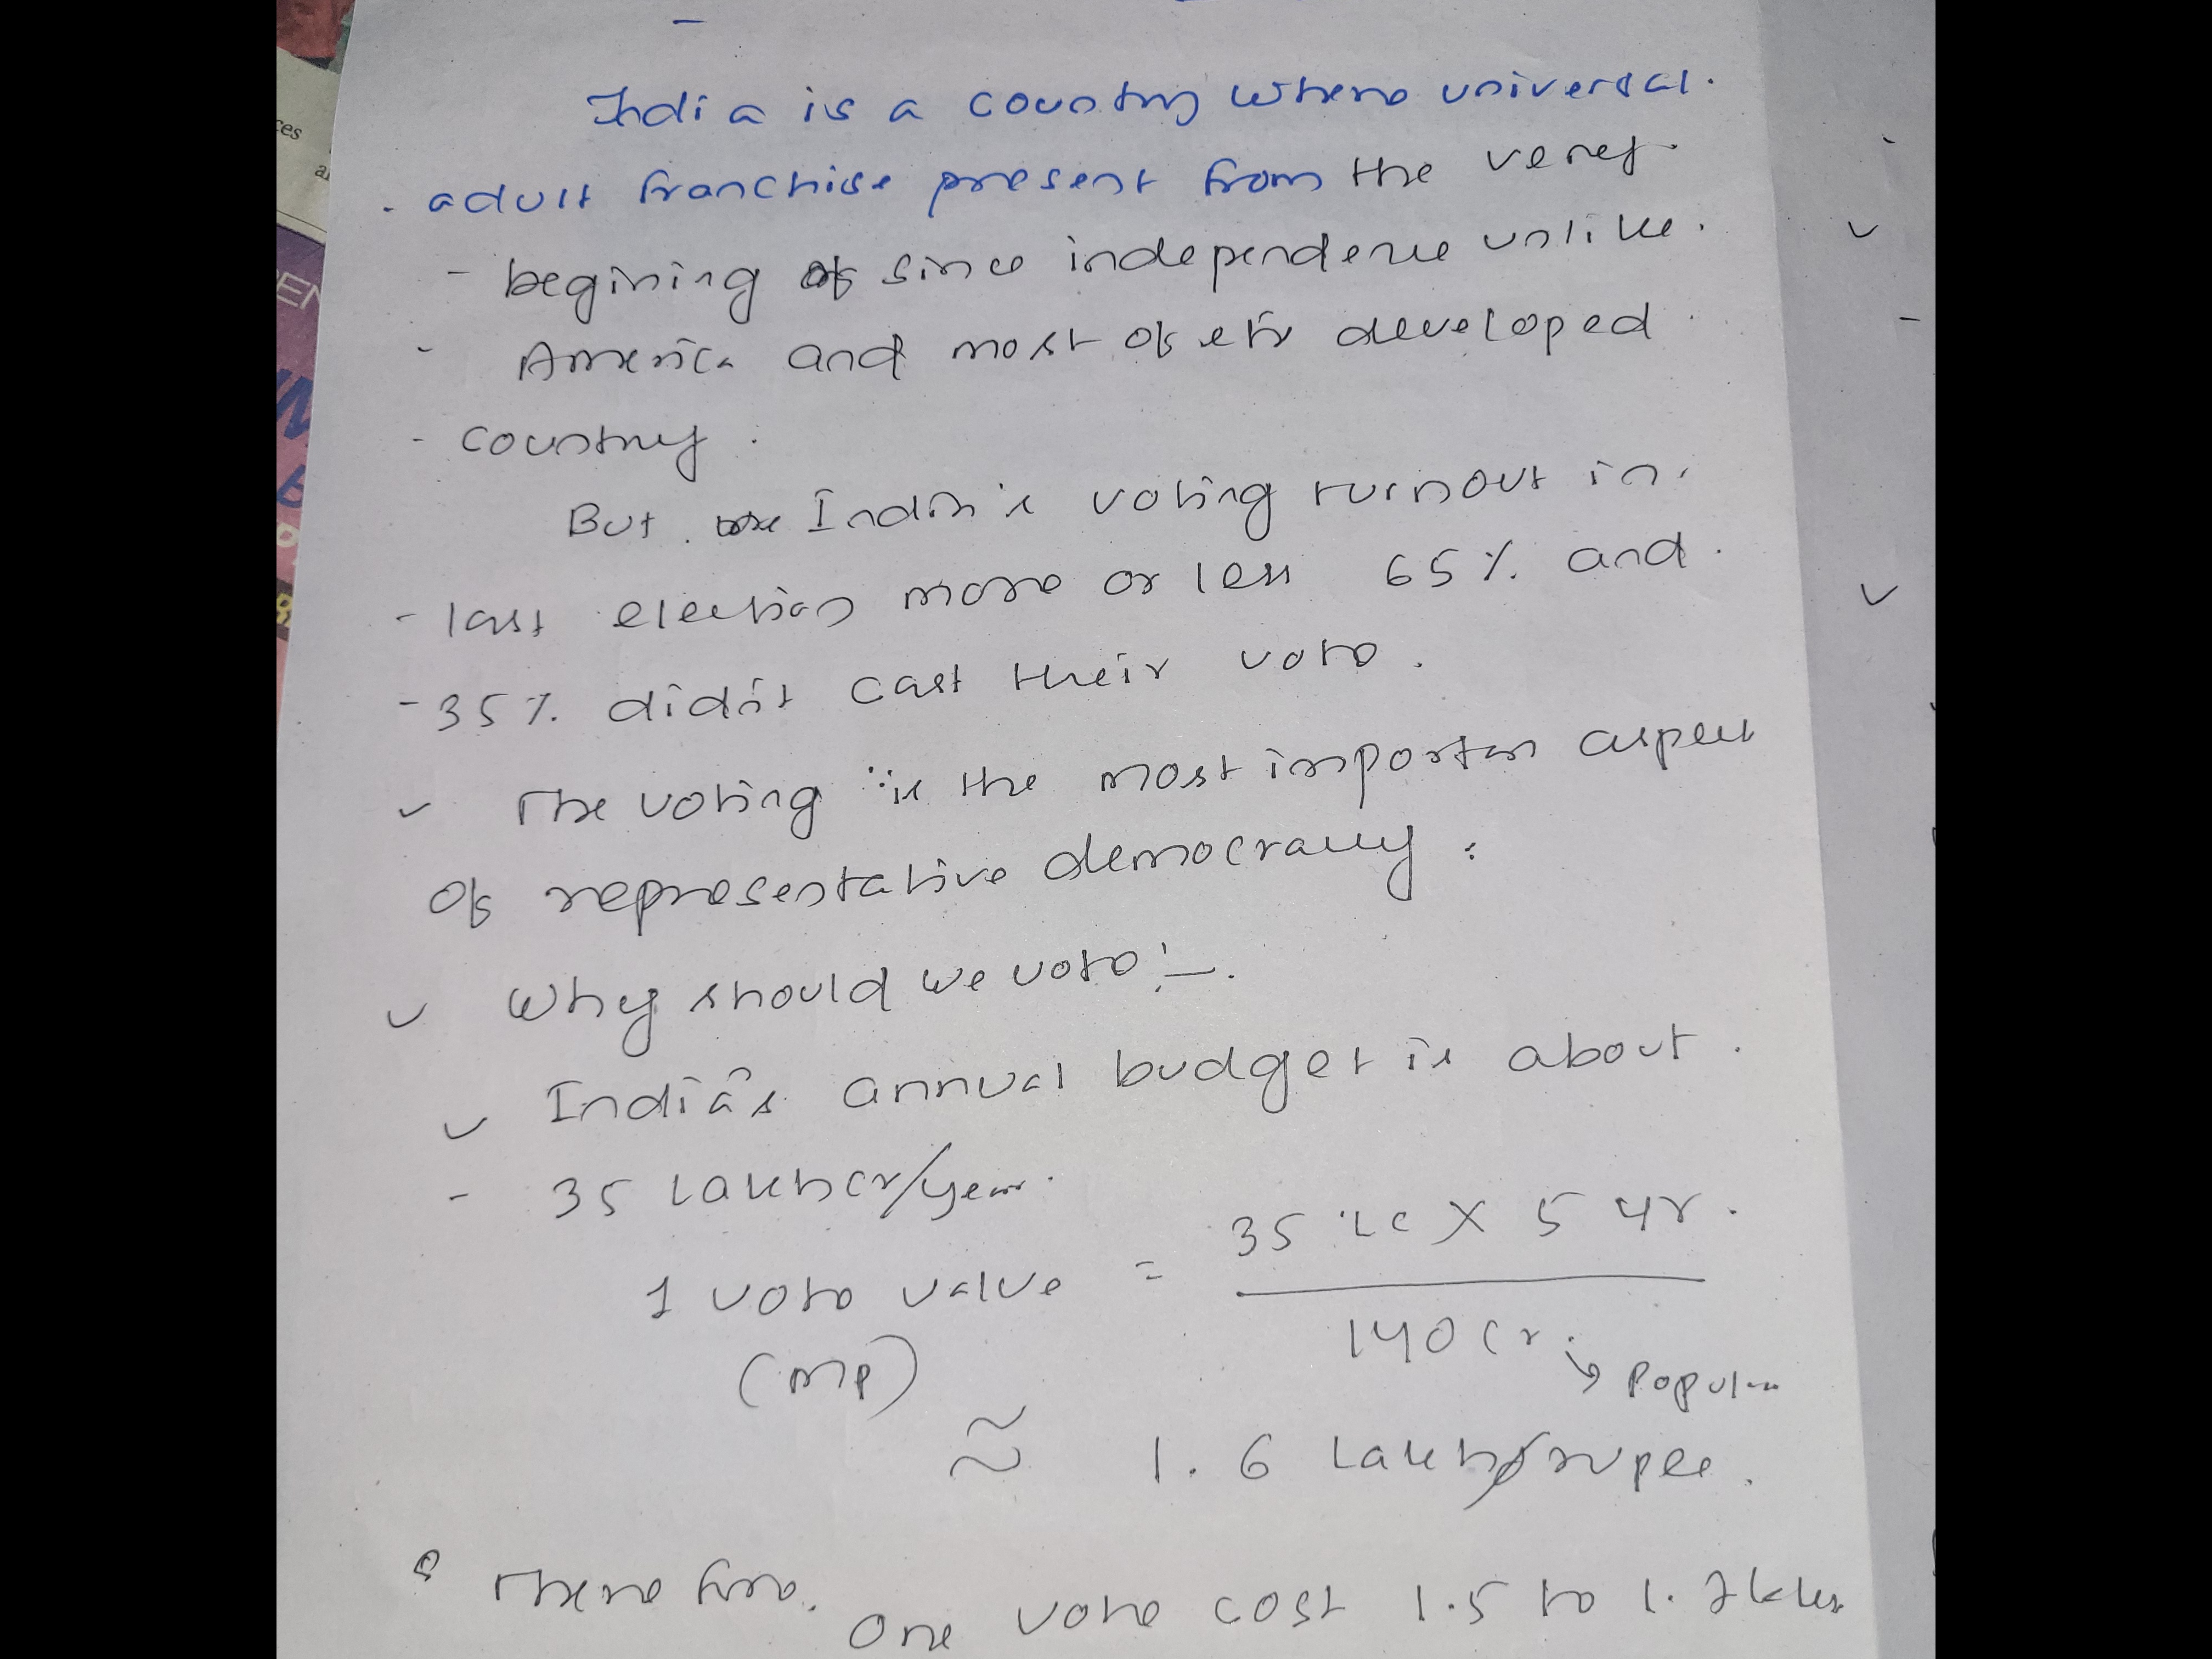 India is a country where universal.
adult franchise present from the verey
- begining of since independence unlike.
- America and most of eth developed
- country.
But India's voting turnout in
- last election more or less 65% and
- 35% didn't cast their vote.
The voting is the most importan aspect
of representative democracy.
Why should we vote :-
India's annual budget is about.
- 35 Lakh cr/year.
35 LC X 5 yr.
1 vote value =
140 Cr. → Popul
(MP)
≈ 1.6 Lakh rupee.
Therefore. One vote cost 1.5 to 1.7